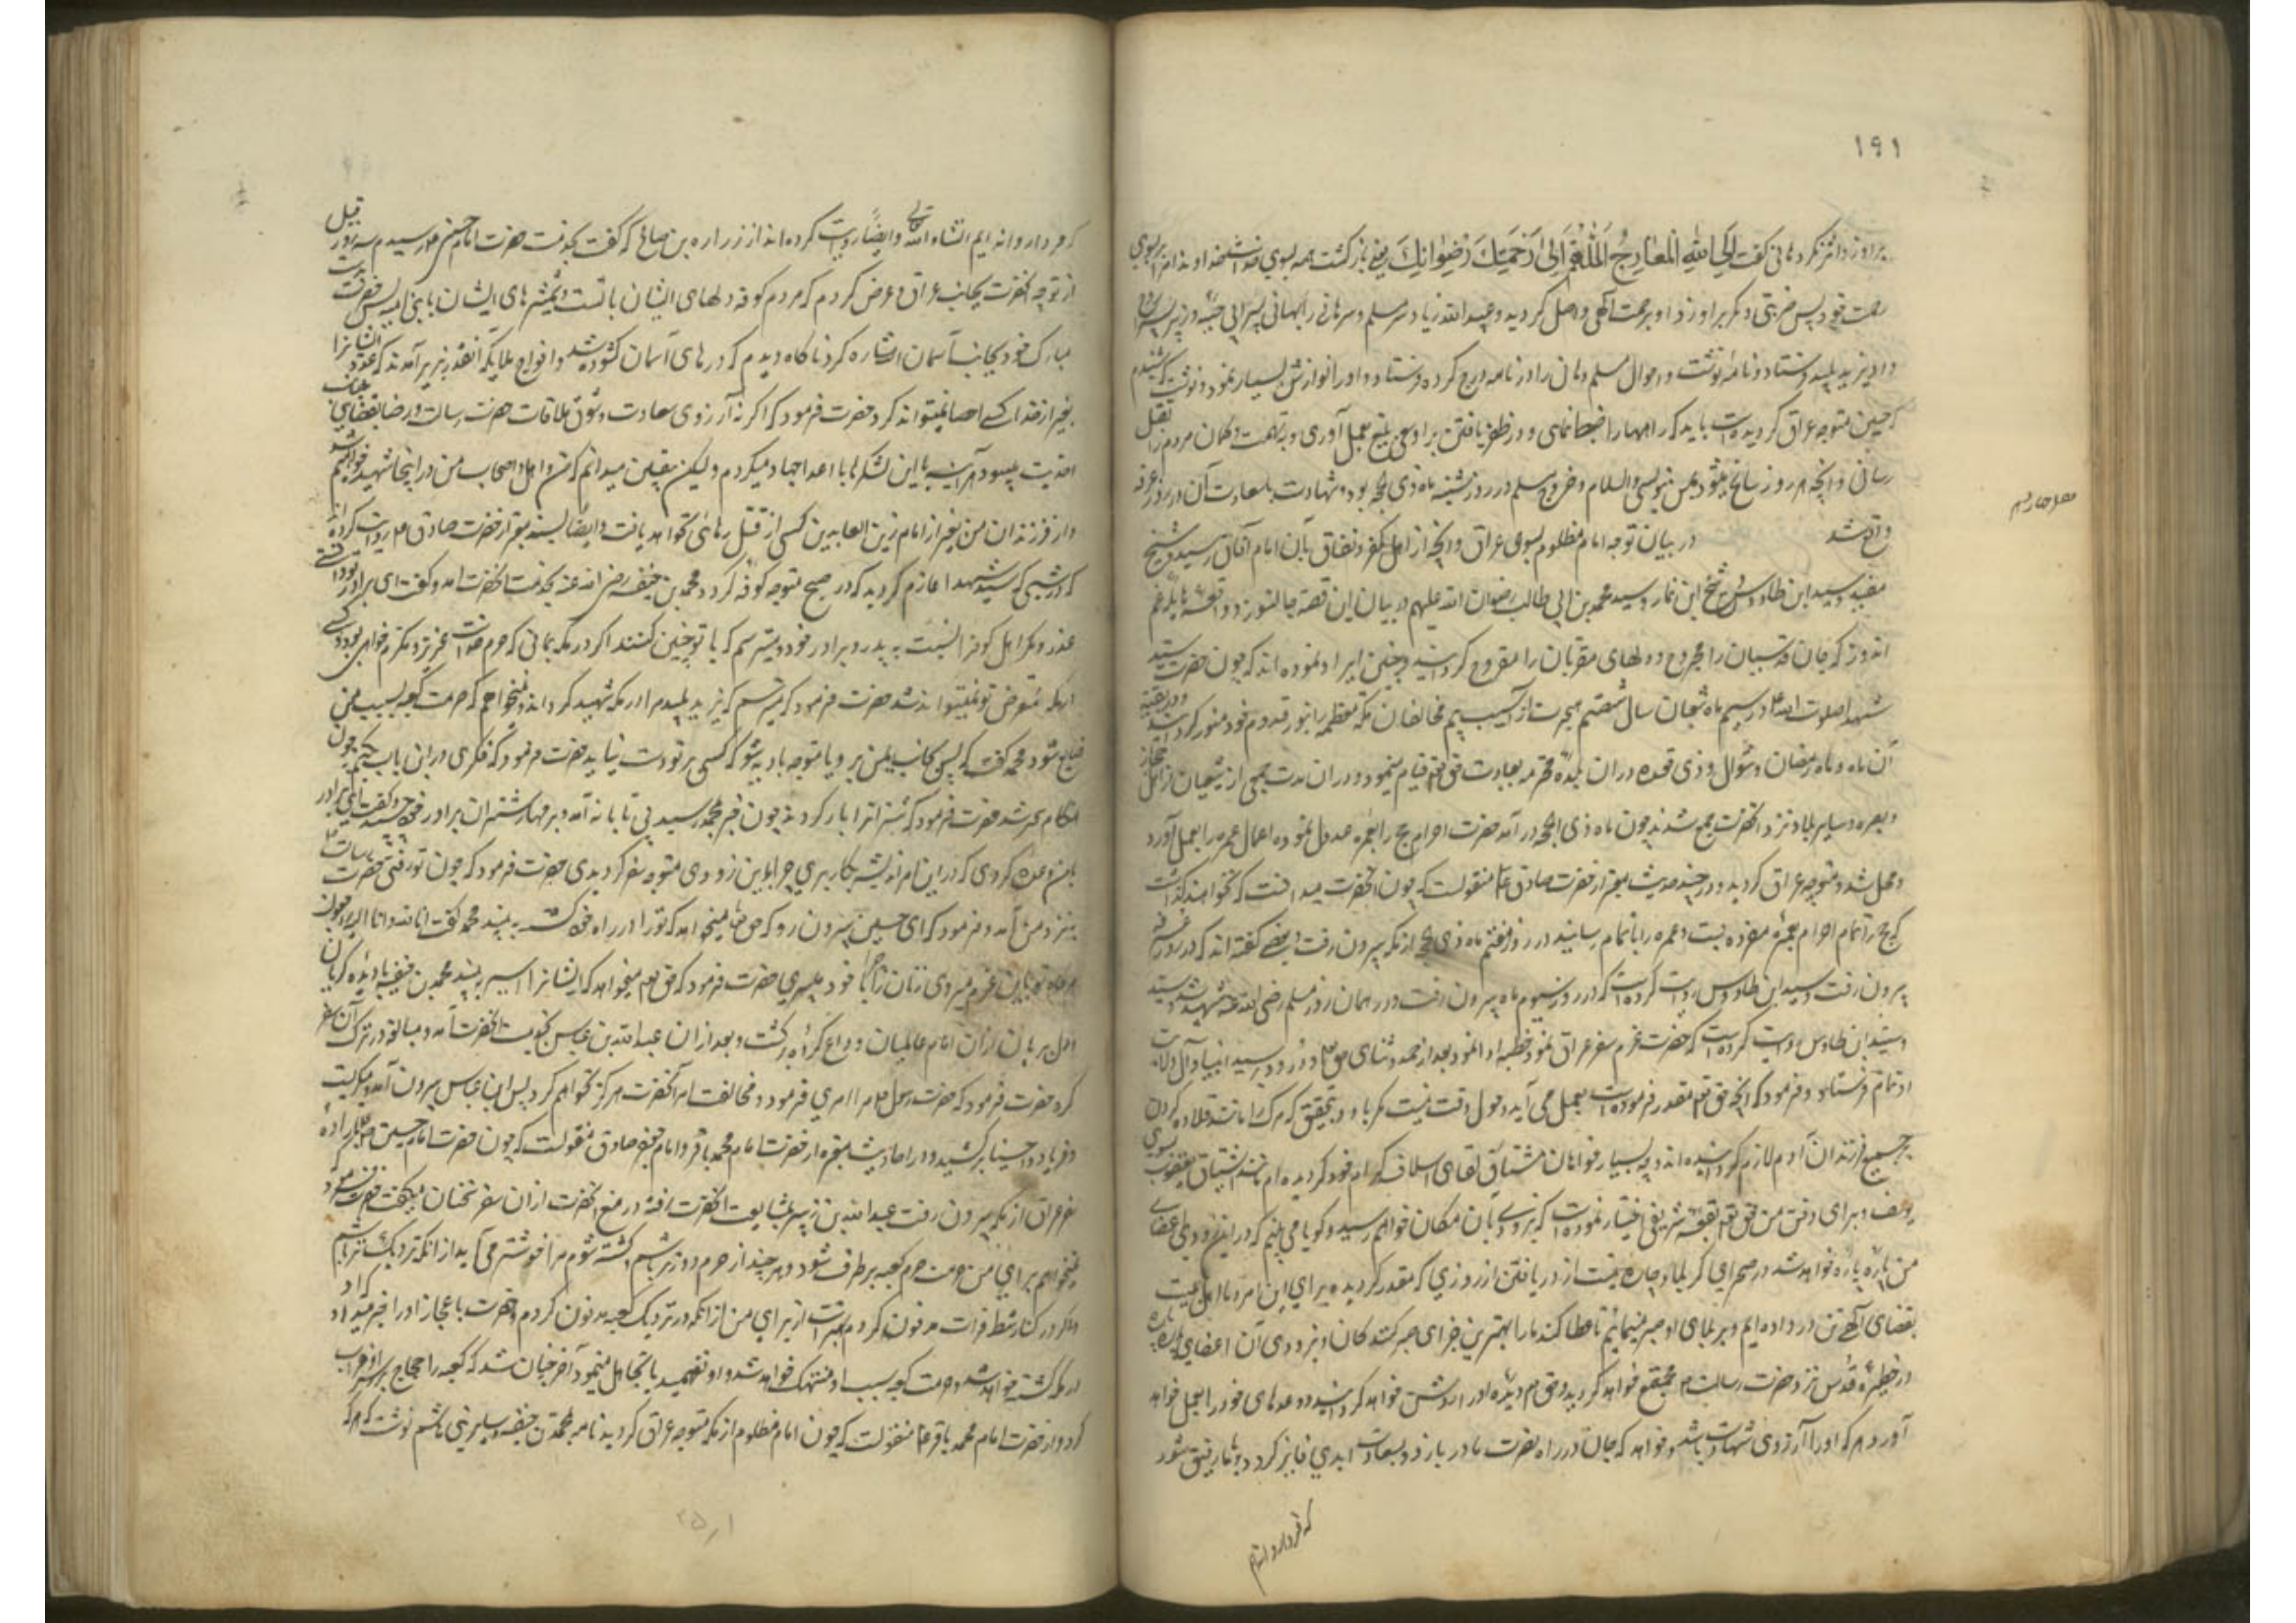 ۱۹۱
براو زد و اثر نکرد هانی گفت اِلَی اللهِ الْمَعَادِ اَللّٰهُمَّ اِلٰی رَحْمَتِكَ وَ رِضْوَانِكَ یعنی بازگشت همه بسوی خداست خداوندا مرا ببر بسوی
رحمت خود پس ضربتی دیگر بر او زد و او برحمت الهی واصل گردید و عبید الله زیاد سر مسلم و سر هانی را
داد و نزد یزید پلید فرستاد و نامه نوشت و احوال مسلم و هانی را در نامه درج کرده فرستاد و او را نوازش بسیار نمود و نوشت که شنیدم
که حسین متوجه عراق گردیده است باید که راهها را ضبط نمائی و در ظفر یافتن بر او سعی بلیغ بعمل آوری و به تهمت و گمان مردم را بقتل
رسانی و آنچه هر روز سانح میشود بمن بنویسی والسلام و خروج مسلم در روز سه شنبه ماه ذی الحجه بود و شهادت با سعادت آن در روز عرفه
واقع شد در بیان توجه امام مظلوم بسوی عراق و آنچه از اهل کفر و نفاق بآن امام آفاق رسید شیخ
مفید و سید ابن طاوس و شیخ ابن نما و سید محمد بن ابی طالب رضوان الله علیهم در بیان این قصه جانسوز و واقعه هایله غم
اندوز که جان قدسیان را مجروح و دلهای مقربان را مقروح گردانیده چنین ایراد نموده اند که چون حضرت سید
شهدا صلوات الله علیه در سیم ماه شعبان سال شصتم هجرت از آسیب بیم مخالفان مکه معظمه را بنور قدوم خود منور گردانید در بقیه
آن ماه و ماه رمضان و شوال و ذی قعده در آن بلده محترمه بعبادت حق تعالی قیام مینمود و در آن مدت جمعی از شیعیان از اهل حجاز
و بصره و سایر بلاد نزد آنحضرت جمع شدند چون ماه ذی الحجه در آمد حضرت احرام حج را بعمره عدول نموده اعمال عمره را بعمل آورد
و محل شد و متوجه عراق گردید و در چند حدیث معتبر از حضرت صادق ع منقولست که چون آنحضرت میدانست که نخواهند گذاشت
که حج را تمام احرام بعمره مفرده بست و عمره را باتمام رسانید در روز هفتم ماه ذی الحجه از مکه بیرون رفت و بعضی گفته اند که در روز عرفه
بیرون رفت و سید ابن طاوس روایت کرده است که در روز سیوم ماه بیرون رفت و در همان روز مسلم رضی الله عنه شهید شد و سید
و سید ابن طاوس روایت کرده است که حضرت عزم سفر عراق نمود خطبه ادا نمود بعد از حمد و ثنای حق تعالی و درود بر سید انبیا و آل
او تمام فرستاد و فرمود که آنچه حق تعالی مقدر فرموده است بعمل می آید و حول و قوت نیست مگر باو و بتحقیق که مرگ را مانند قلاده در گردن
جمیع فرزندان آدم لازم گردانیده اند و چه بسیار خواهان و مشتاق لقای اسلاف کرام خود گردیده ام مانند اشتیاق یعقوب بسوی
یوسف و برای دفن من حق تعالی بقعه شریفی اختیار نموده است که بزودی بآن مکان خواهم رسید و گویا می بینم که در این زودی اعضای
من پاره پاره خواهد شد در صحرای کربلا و چاره نیست از دریافتن از روزی که مقدر گردیده برای این امر و ما اهل بیت
بقضای الهی تن در داده ایم و بر بلای او صبر مینمائیم تا عطا کند ما را بهترین جزای صبر کنندگان و بزودی آن اعضای پاره پاره
در حظیره قدس نزد حضرت رسالت مجتمع خواهد گردید و حق دیده او را روشن خواهد گردانید و وعدهای خود را بعمل خواهد
آورد هر که او را آرزوی شهادت باشد و خواهد که جان در راه نصرت ما در بازد و بسعادت ابدی فایز گردد با ما رفیق شود
که فردا روانه ایم
که فردا روانه ایم انشاء الله تعالی و ایضا روایت کرده اند از زراره بن صالح که گفت بخدمت حضرت امام حسین ع رسیدم سه روز قبل
از توجه آنحضرت بجانب عراق و عرض کردم که مردم کوفه دلهای ایشان با تست و شمشیرهای ایشان با بنی امیه پس حضرت بدست
مبارک خود بجانب آسمان اشاره کرد ناگاه دیدم که درهای آسمان گشوده شد و افواج ملایکه آنقدر بزیر آمدند که عدد ایشانرا
بغیر از خدا کسی احصا نمیتواند کرد حضرت فرمود که اگر نه آرزوی سعادت و شوق ملاقات حضرت رسالت و رضا بقضای جناب
احدیت میبود هر آینه باین لشکرها با اعدا جهاد میکردم ولیکن بیقین میدانم که من و اهل و اصحاب من در اینجا شهید خواهیم شد
و از فرزندان من بغیر از امام زین العابدین کسی از قتل رهائی نخواهد یافت و ایضا بسند معتبر از حضرت صادق ع روایت کرده اند
که در شبی که سید شهدا عازم گردید که در صبح متوجه کوفه گردد محمد بن حنفیه رضی الله عنه بخدمت آنحضرت آمد و گفت ای برادر تو دانستی
غدر و مکر اهل کوفه را نسبت به پدر و برادر خود و میترسم که با تو چنین کنند اگر در مکه بمانی که حرم خداست عزیز و مکرم خواهی بود و کسی
در مکه متعرض تو نمیتواند شد حضرت فرمود که میترسم که یزید پلید مرا در مکه شهید گرداند و نمیخواهم که حرمت کعبه بسبب من
ضایع شود محمد گفت که پس بجانب یمن برو یا متوجه بادیه شو که کسی بر تو دست نیابد حضرت فرمود که فکری در این باب بکنم چون
هنگام سحر شد حضرت فرمود که شتران را بار کردند چون خبر بمحمد رسید بی تابانه آمد و بر مهار شتر آن برادر خود چسبید و گفت ای برادر
با من وعده کردی که در این امر اندیشه بکار بری چرا باین زودی متوجه سفر گردیدی حضرت فرمود که چون تو رفتی حضرت رسالت
بنزد من آمد و فرمود که ای حسین بیرون رو که حق تعالی میخواهد که ترا در راه خود کشته به بیند محمد گفت انا لله و انا الیه راجعون
هرگاه تو باین عزم میروی زنان را چرا با خود میبری حضرت فرمود که حق تعالی میخواهد که ایشانرا اسیر به بیند محمد بن حنفیه با دیده گریان
و دل بریان از آن امام عالمیان وداع کرده برگشت و بعد از آن عبد الله بن عباس بخدمت آنحضرت آمد و مبالغه در ترک آن سفر
کرد حضرت فرمود که حضرت رسول ص مرا امری فرمود و مخالفت امر آنحضرت هرگز نخواهم کرد پس ابن عباس بیرون آمد و میگریست
و فریاد و احسینا بر کشید و در احادیث معتبره از حضرت امام محمد باقر و امام جعفر صادق منقولست که چون حضرت امام حسین ع اراده
سفر عراق از مکه بیرون رفت عبد الله بن زبیر بمشایعت آنحضرت رفته در منع آنحضرت از آن سفر سخنان میگفت حضرت فرمود
نمیخواهم برای من حرمت حرم کعبه بر طرف شود و هر چند از حرم دورتر باشم و کشته شوم مرا خوشتر می آید از آنکه نزدیکتر باشم
و اگر در کنار شط فرات مدفون گردم بهتر است از برای من از آنکه در نزدیک کعبه مدفون گردم حضرت باعجاز او را خبر میداد که او
در مکه کشته خواهد شد و حرمت کعبه بسبب او منتهک خواهد شد و او نفهمید یا تجاهل مینمود و آخر چنان شد که کعبه را حجاج بر سر او خراب
کرد و از حضرت امام محمد باقر ع منقولست که چون امام مظلوم از مکه متوجه عراق گردید نامه بمحمد بن حنفیه و سایر بنی هاشم نوشت که هر که